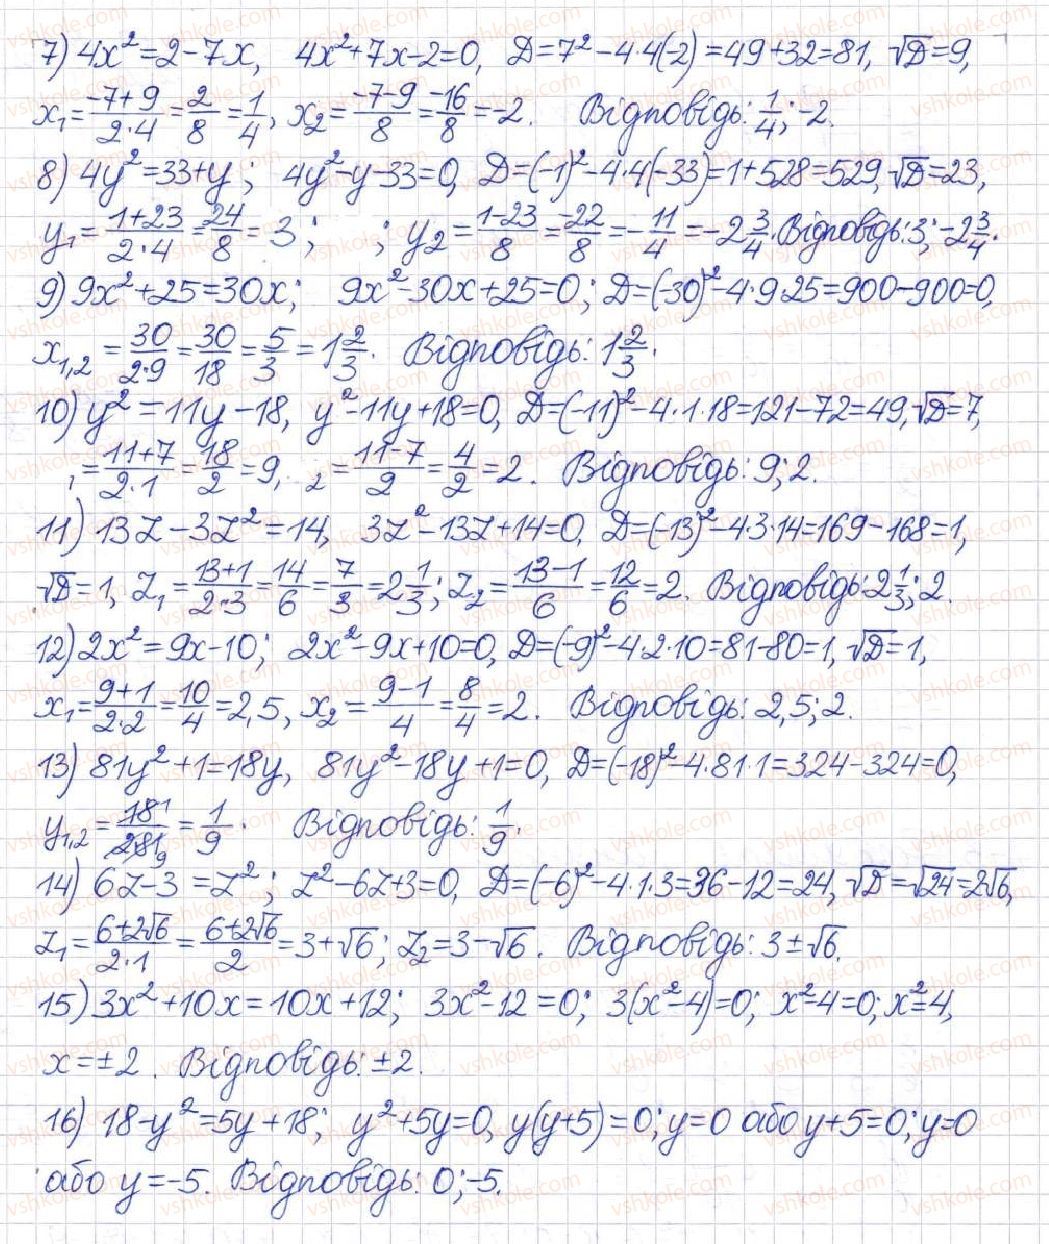 7) 4x²=2-7x, 4x²+7x-2=0, D=7²-4·4(-2)=49+32=81, √D=9,
x₁=(-7+9)/(2·4)=2/8=1/4, x₂=(-7-9)/8=-16/8=-2. Відповідь: 1/4; -2.
8) 4y²=33+y; 4y²-y-33=0, D=(-1)²-4·4(-33)=1+528=529, √D=23,
y₁=(1+23)/(2·4)=24/8=3; ; y₂=(1-23)/8=-22/8=-11/4=-2 3/4. Відповідь: 3; -2 3/4.
9) 9x²+25=30x; 9x²-30x+25=0; D=(-30)²-4·9·25=900-900=0,
x₁,₂=30/(2·9)=30/18=5/3=1 2/3. Відповідь: 1 2/3.
10) y²=11y-18, y²-11y+18=0, D=(-11)²-4·1·18=121-72=49, √D=7,
₁=(11+7)/(2·1)=18/2=9, ₂=(11-7)/2=4/2=2. Відповідь: 9; 2.
11) 13z-3z²=14, 3z²-13z+14=0, D=(-13)²-4·3·14=169-168=1,
√D=1, z₁=(13+1)/(2·3)=14/6=7/3=2 1/3; z₂=(13-1)/6=12/6=2. Відповідь: 2 1/3; 2.
12) 2x²=9x-10; 2x²-9x+10=0, D=(-9)²-4·2·10=81-80=1, √D=1,
x₁=(9+1)/(2·2)=10/4=2,5, x₂=(9-1)/4=8/4=2. Відповідь: 2,5; 2.
13) 81y²+1=18y, 81y²-18y+1=0, D=(-18)²-4·81·1=324-324=0,
y₁,₂=18 1/(2·81 9)=1/9. Відповідь: 1/9.
14) 6z-3=z²; z²-6z+3=0, D=(-6)²-4·1·3=36-12=24, √D=√24=2√6,
z₁=(6+2√6)/(2·1)=(6+2√6)/2=3+√6; z₂=3-√6. Відповідь: 3±√6.
15) 3x²+10x=10x+12; 3x²-12=0; 3(x²-4)=0; x²-4=0; x²=4,
x=±2. Відповідь: ±2.
16) 18-y²=5y+18; y²+5y=0, y(y+5)=0; y=0 або y+5=0; y=0
або y=-5. Відповідь: 0; -5.
vshkole.com